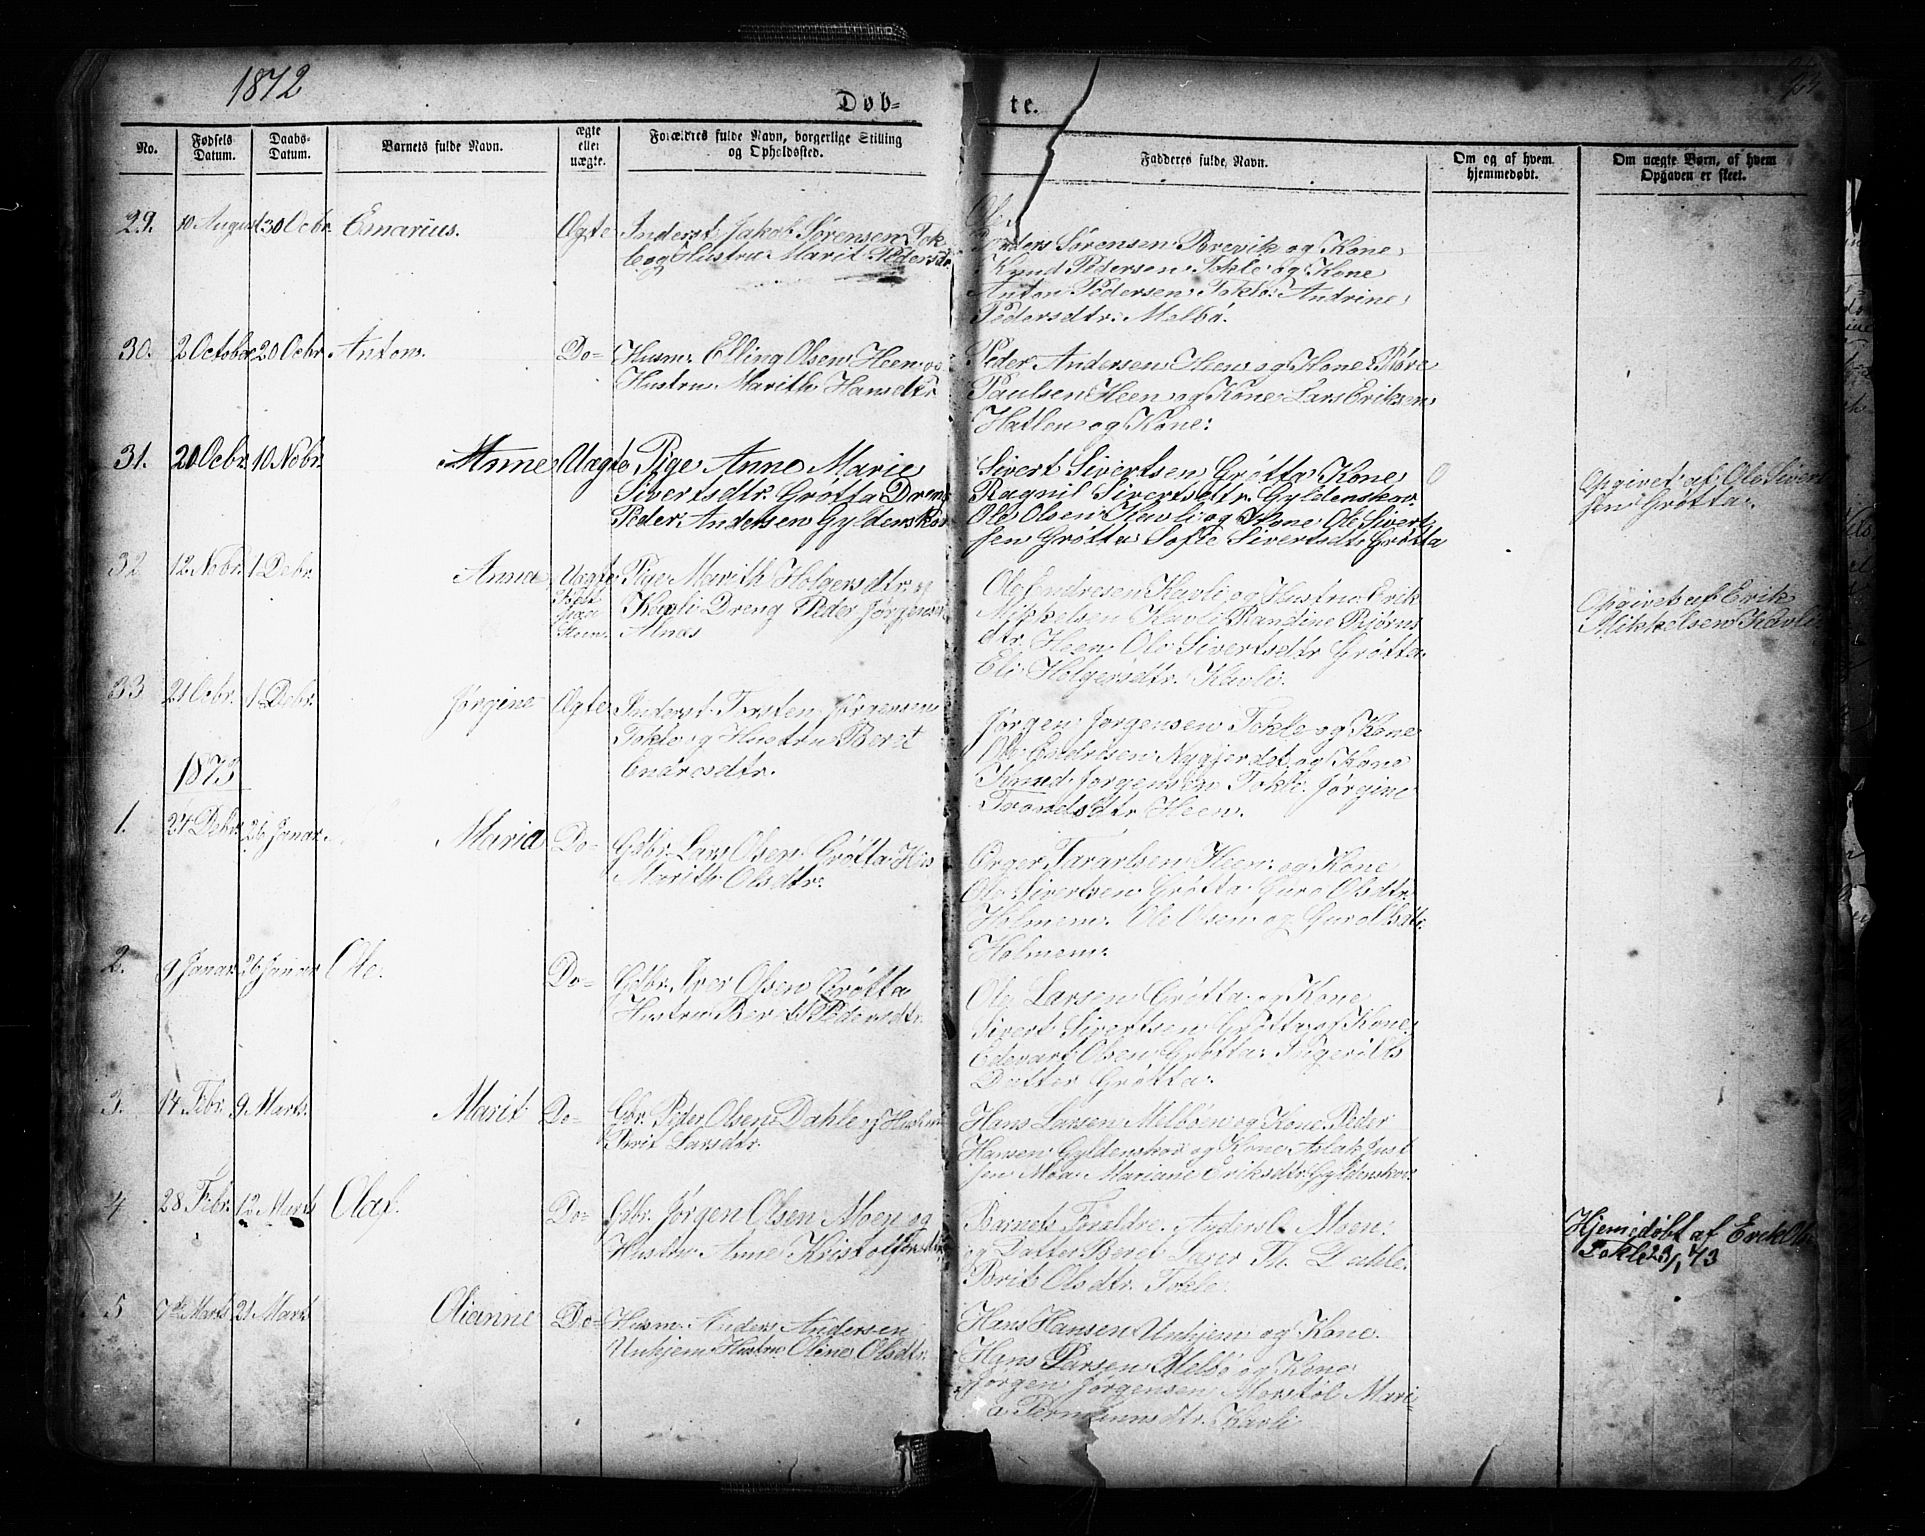 1872
Døb-
te.
No.
Fødsels Datum.
Daabs-Datum.
Barnets fulde Navn.
ægte eller uægte.
Forældres fulde Navn, borgerlige Stilling og Opholdssted.
Fadderes fulde Navn.
Om og af hvem hjemmedøbt.
Om uægte Børn, af hvem Opgaven er skeet.
29. 10 August 30 Octbr. Emarius. Ægte Inderst Jakob Sørensen Tok-
le og Hustru Marit Pedersdtr
Ole
Anders Sørensen Brevik og Kone
Knud Pedersen Tokle og Kone
Anton Pedersen Tokle: Andrine
Pedersdtr. Melbø.
30. 2 October 20 Ocbr Anton. Do- Husm. Elling Olsen Heen og
Hustru Marith Hansdtr
Peder Andersen Heen og Kone
Paulsen Heen og Kone Lars Eriksen
Hatlen og Kone:
31. 20 Ocbr. 10 Nobr. Anne Uægte Pige Anne Marie
Sivertsdtr. Grøtta Dreng
Peder Andersen Gyldenskor
Sivert Sivertsen Grøtta Kone
Ragnil Sivertsdtr. Gyldenskor
Ole Olsen Kavli og Kone Ole Sivert
sen Grøtta Sofie Sivertsdtr Grøtta
Opgivet af Ole Sivert
sen Grøtta.
32 12 Nobr. 1 Debr. Anna Uægte Pige Marith Holgersdtr.
Kavli Dreng Peder Jørgensen
Alnæs
Ole Endresen Kavli og Hustru Erik
Mikkelsen Kavli Randine Bjørns
dtr. Heen Ole Sivertsdtr Grøtta
Eli Holgersdtr. Kavli.
Opgivet af Erik
Mikkelsen Kavli
33 21 Ocbr. 1 Debr. Jørgine Ægte Inderst Torsten Jørgensen
Tokle og Hustru Beret
Endresdtr.
Jørgen Jørgensen Tokle og Kone
Ole Endresen Nygjerdet og Kone
Knud Jørgensen Tokle. Jørgine
Trondsdtr Heen.
1873
1. 24 Debr. 26 Janar. Maria Do- Gdbr. Lars Olsen Grøtta Hus
Marith Olsdtr.
Heen: og Kone
Ole Sivertsen Grøtta Guro Olsdtr.
Holmem. Ole Olsen og Guro Olsdtr.
Holmem.
2. 9 Janar. 26 Janar Ole. Do- Gdbr. Iver Olsen Grøtta
Hustru Berit Pedersdtr.
Ole Larsen Grøtta og Kone
Sivert Sivertsen Grøtta og Kone
Edevart Olsen Grøtta: Ingeri Ols
Datter Grøtta.
3. 14 Febr. 9 Marts. Marit Do- Gbr. Peder Olsen Dahle og Hustru
Brit Larsdtr.
Hans Larsen Melbøen og Kone Peder
Hansen Gyldenskor og Kone Aslak Just
sen Moa Mariane Eriksdtr. Gyldenskor
4 28 Febr. 12 Marts Olaf. Do- Gdbr. Jørgen Olsen Moen og
Hustru Anne Kristoffersdtr
Barnets Foreldre. Anders L. Moen.
og Datter Beret Lærer Th. Dahle.
Brit Olsdtr. Tokle.
Hjemmedøbt af Erik
Tokle 23/1 73
5 7de Marts 21 Marts Olianne Do- Husm. Anders Andersen
Unhjem Hustru Oline Olsdtr.
Hans Hansen Unhjem og Kone
Hans Larsen Melbø og Kone
Jørgen Jørgensen Morstøl Mari-
a Kavli